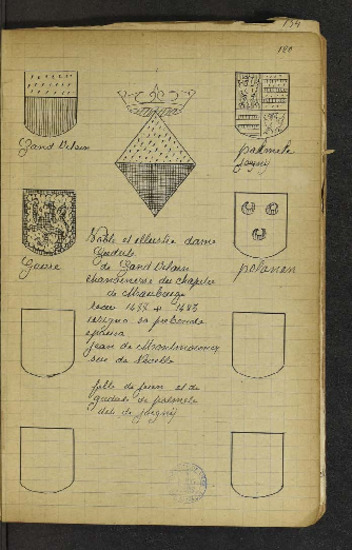 134
180
Gand Vilain
palmele
Joigny
Goure
polanen
Noble et illustre dame
Gudule
de Gand Vilain
chanoinesse du chapitre
de Maubeuge
recue 1477 + 1487
résigna sa prebende
épousa
jean de Montmorency
sire de Nivelle
fille de jean et de
gudule de palmele
dite de joigny